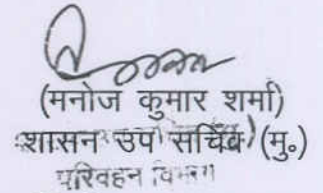 (मनोज कुमार शर्मा)
शासन उप सचिव (मु०)
परिवहन विभाग